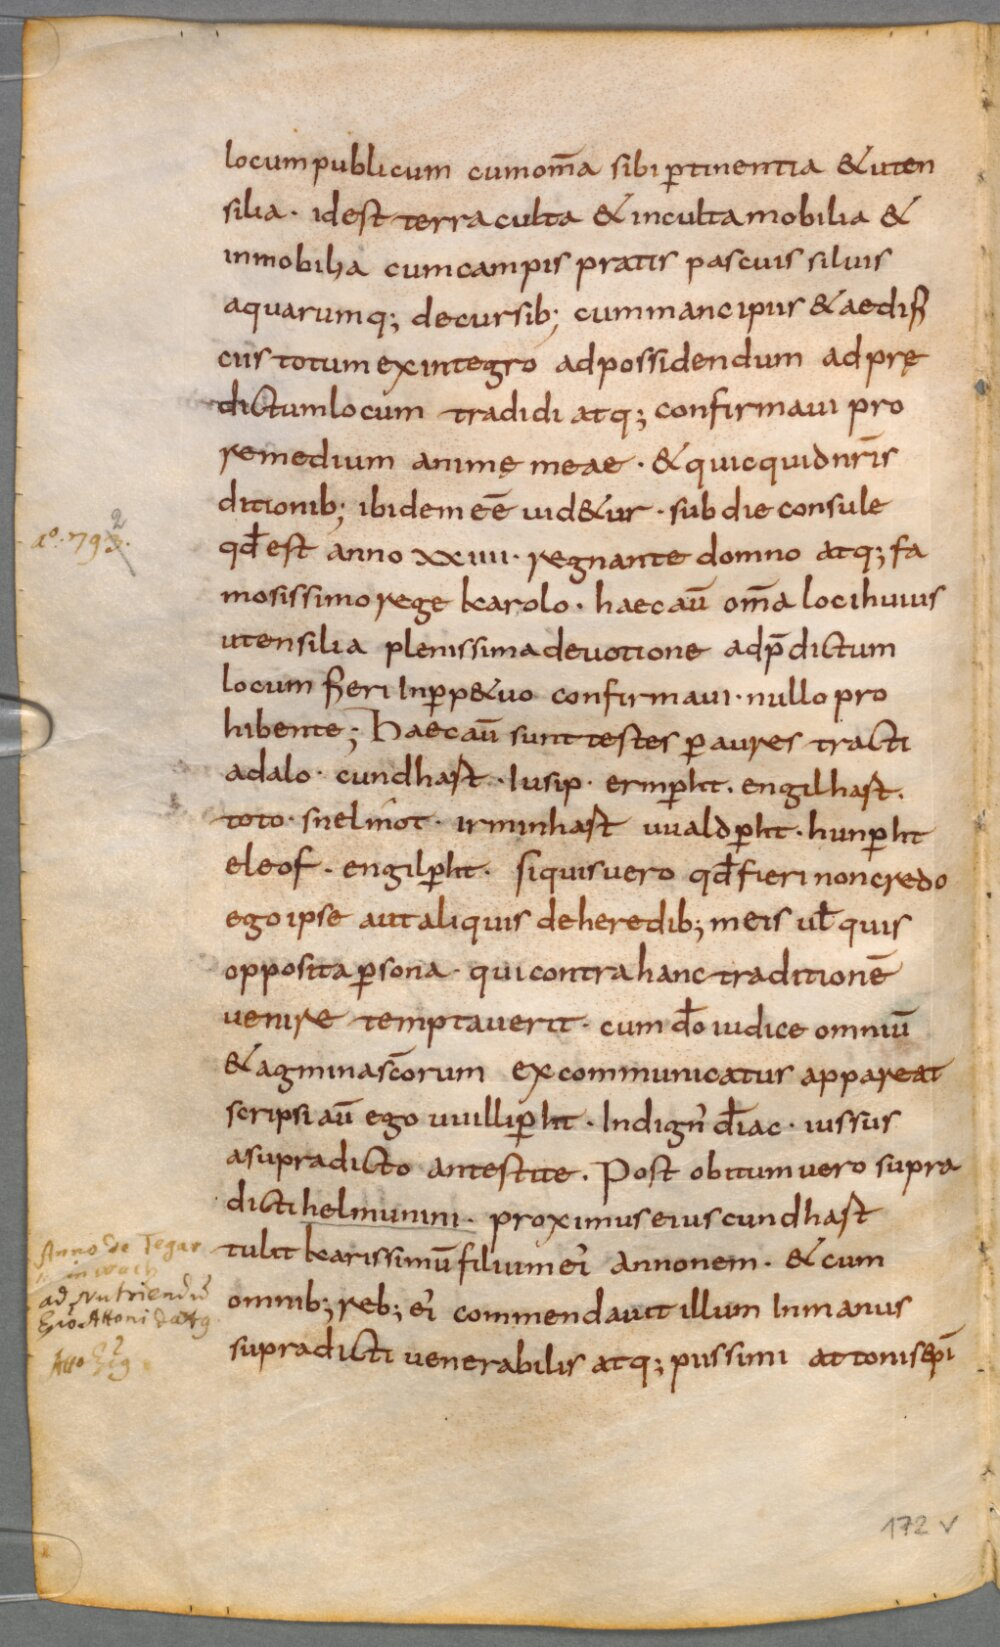 locum publicum cum om̄a sibi ꝑtinentia & uten
silia · id est terra culta & inculta mobilia &
inmobilia cum campis pratis pascuis siluis
aquarumq; decursib; cum mancipiis & aedifi
ciis totum ex integro ad possidendum ad prę
dictum locum tradidi atq; confirmaui pro
remedium animę meae · & quicquid nr̄is
ditionib; ibidem eē uid&ur · sub die consule
qd̄ est anno xxiiii · regnante domno atq; fa
mosissimo rege karolo · haec aū om̄a loci huius
utensilia plenissima deuotione ad p̄dictum
locum fieri In ꝑp&uo confirmaui · nullo pro
hibente; Haec aū sunt testes ꝑ aures tracti
adalo · cundhast · lusip · ermꝑht · engilhast ·
toto · snelmot · irminhast uualdꝑht · hunꝑht
eleof · engilꝑht · siquis uero qd̄ fieri non credo
ego ipse aut aliquis de heredib; meis ul̄ quis
opposita ꝑsona · qui contra hanc traditionē
uenire temptauerit · cum d̄o iudice omniū
& agmina sc̄orum excommunicatus appareat
scripsi aū ego uuilliꝑht · Indign' diac̄ · iussus
a supradicto antestite · Post obitum uero supra
dicti helmunini · proximus eius cundhast
tulit karissimū filium ei' Annonem · & cum
omnib; reb; ei' commendauit illum In manus
supradicti uenerabilis atq; piissimi attonis ep̄i
a°. 793.
2
Anno de Tegar
in wach
ad Nutriendū
Attoni dattg
Atto
172 v